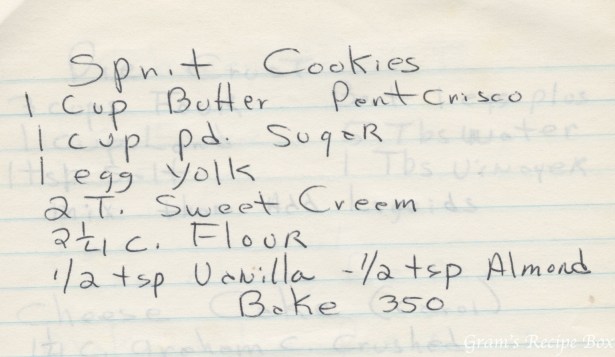 Sprit Cookies
1 Cup Butter Part Crisco
1 cup pd. Sugar
1 egg yolk
2 T. Sweet Creem
2 1/4 c. Flour
1/2 tsp Vanilla - 1/2 tsp Almond
Bake 350
Gram's Recipe Box